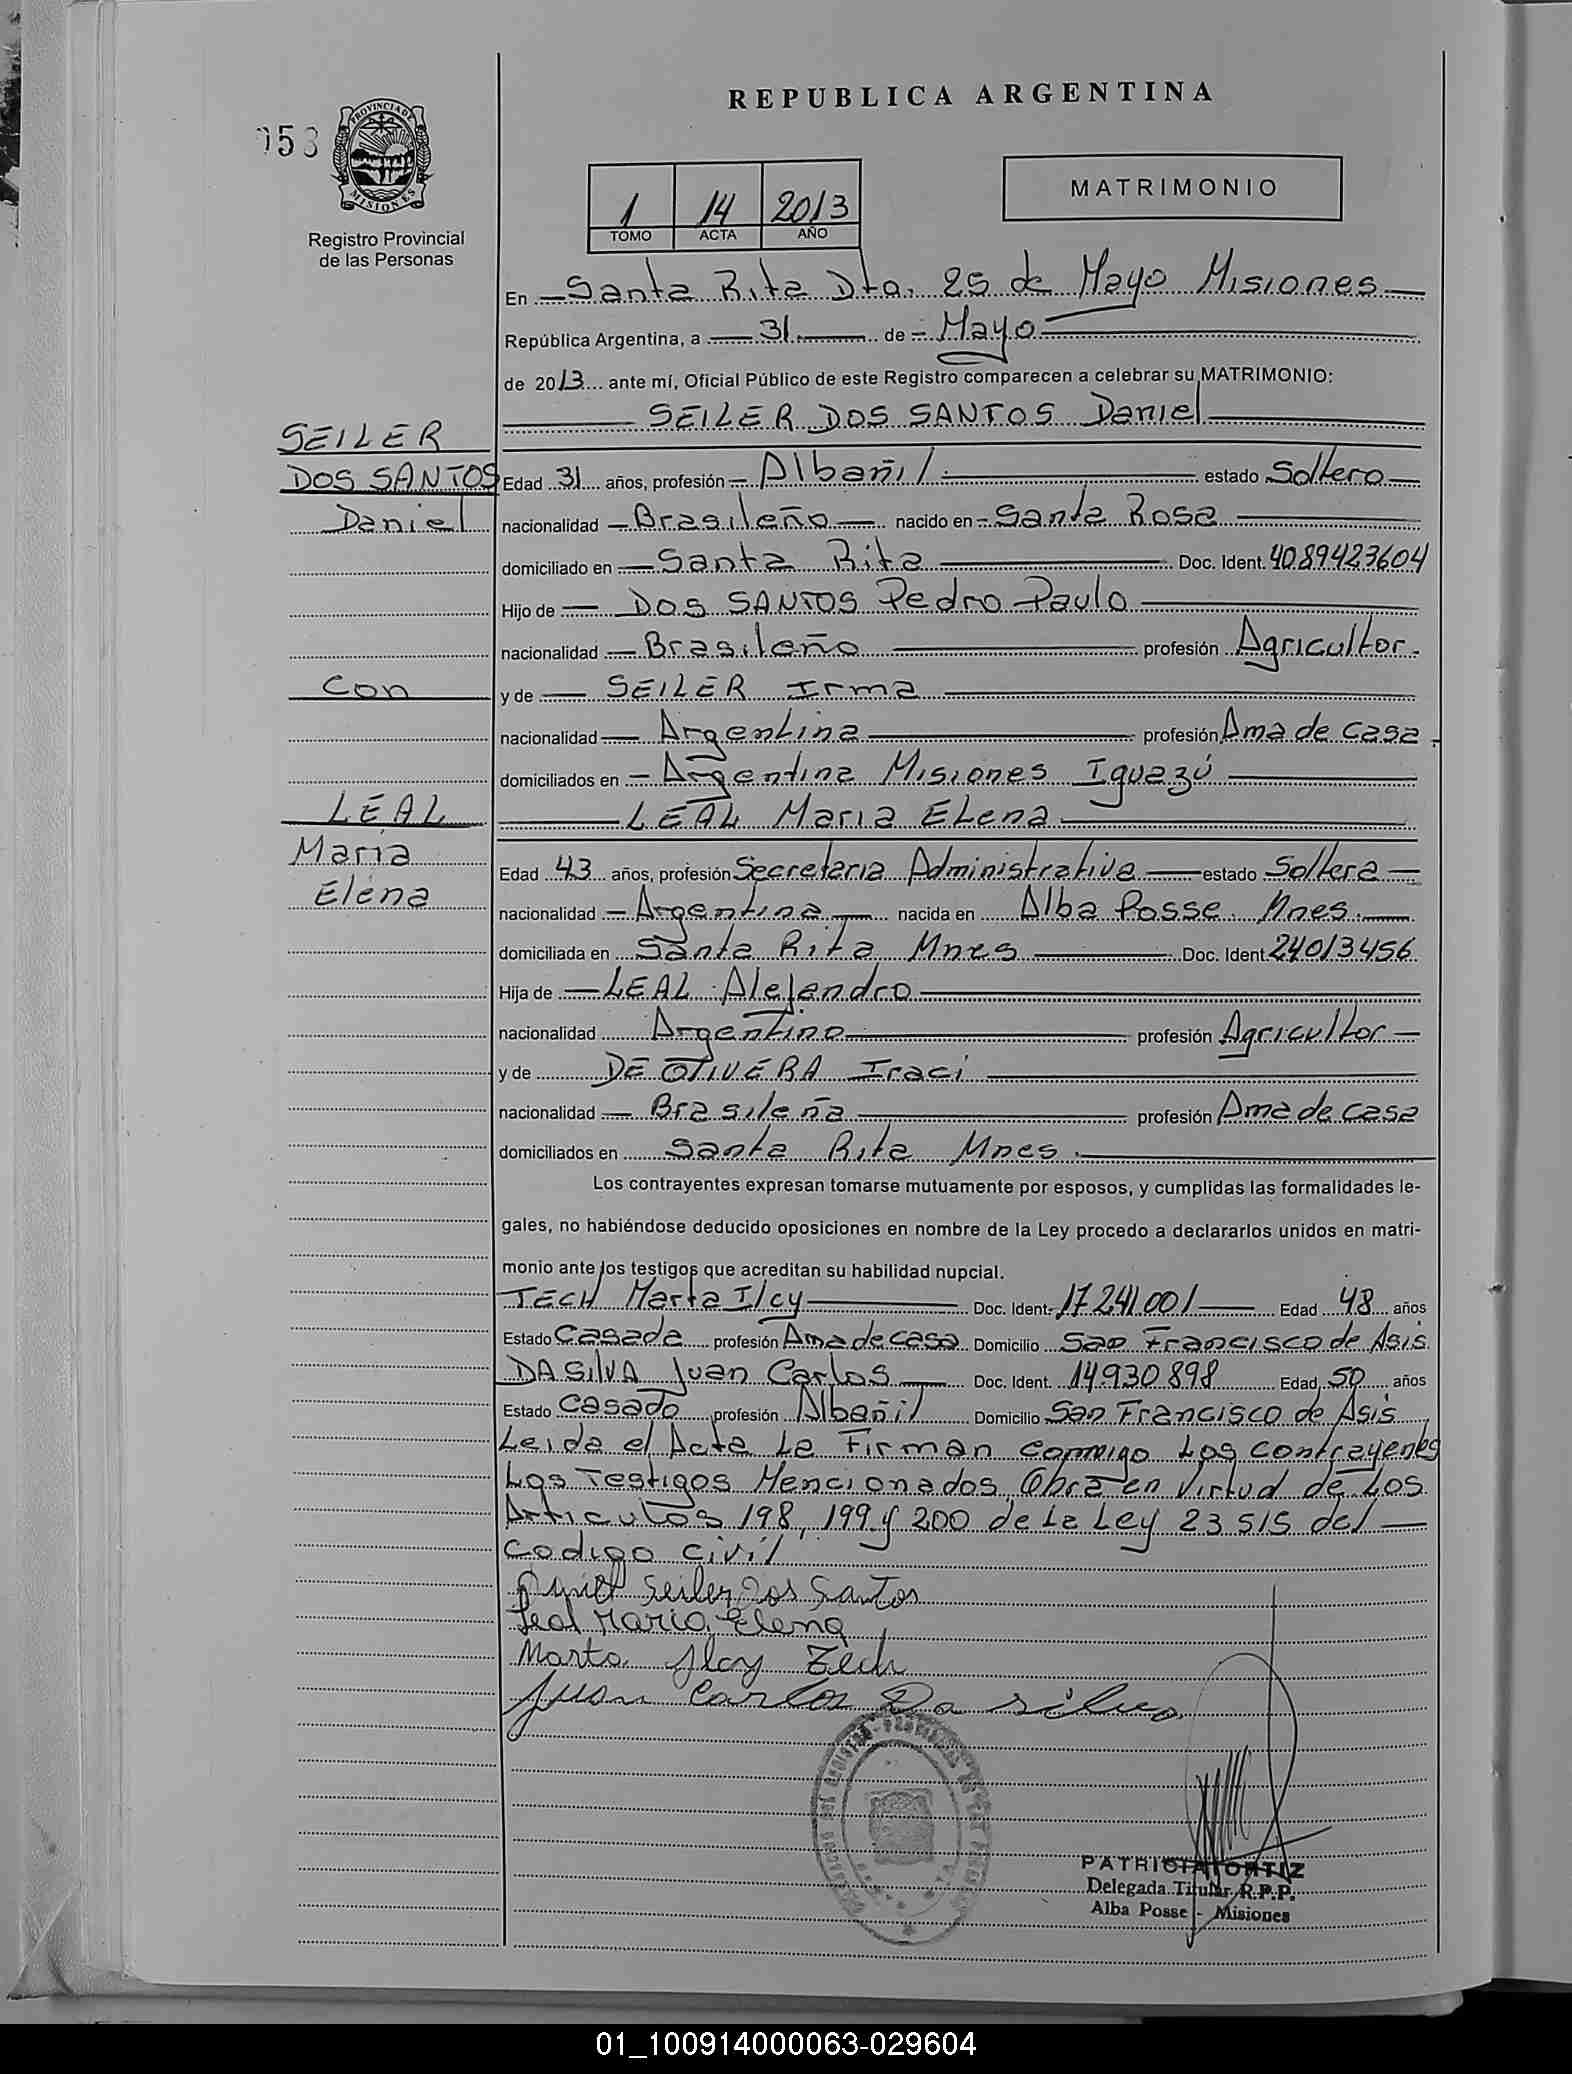 REPUBLICA ARGENTINA
053
PROVINCIA DE
MISIONES
Registro Provincial
de las Personas
1 14 2013
TOMO ACTA AÑO
MATRIMONIO
En Santa Rita Dto. 25 de Mayo Misiones
República Argentina, a 31 de Mayo
de 2013 ante mí, Oficial Público de este Registro comparecen a celebrar su MATRIMONIO:
SEILER DOS SANTOS Daniel
SEILER
DOS SANTOS
Daniel
Edad 31 años, profesión Albañil estado Soltero
nacionalidad Brasileño nacido en Santa Rosa
domiciliado en Santa Rita Doc. Ident. 4089423604
Hijo de DOS SANTOS Pedro Paulo
nacionalidad Brasileño profesión Agricultor
con
y de SEILER Irma
nacionalidad Argentina profesión Ama de casa
domiciliados en Argentina Misiones Iguazú
LEAL
Maria
Elena
LEAL Maria ELena
Edad 43 años, profesión Secretaria Administrativa estado Soltera
nacionalidad Argentina nacida en Alba Posse Mnes.
domiciliada en Santa Rita Mnes Doc. Ident. 24013456
Hija de LEAL Alejandro
nacionalidad Argentino profesión Agricultor
y de DE OLIVERA Iraci
nacionalidad Brasileña profesión Ama de casa
domiciliados en Santa Rita Mnes.
Los contrayentes expresan tomarse mutuamente por esposos, y cumplidas las formalidades le-
gales, no habiéndose deducido oposiciones en nombre de la Ley procedo a declararlos unidos en matri-
monio ante los testigos que acreditan su habilidad nupcial.
TECH Marta Ilcy Doc. Ident. 17.241.001 Edad 48 años
Estado Casada profesión Ama de casa Domicilio San Francisco de Asis
DA SILVA Juan Carlos Doc. Ident. 14.930.898 Edad 50 años
Estado Casado profesión Albañil Domicilio San Francisco de Asis
Leida el Acta La Firman conmigo Los contrayentes
Los Testigos Mencionados, Obra en Virtud de Los
Articulos 198, 199 y 200 de La Ley 23 515 del
Codigo Civil
Daniel Seiler Dos Santos
Leal Maria Elena
Marta Ilcy Zech
Juan Carlos Da Silva
PATRICIA ORTIZ
Delegada Titular R.P.P.
Alba Posse - Misiones
01_100914000063-029604